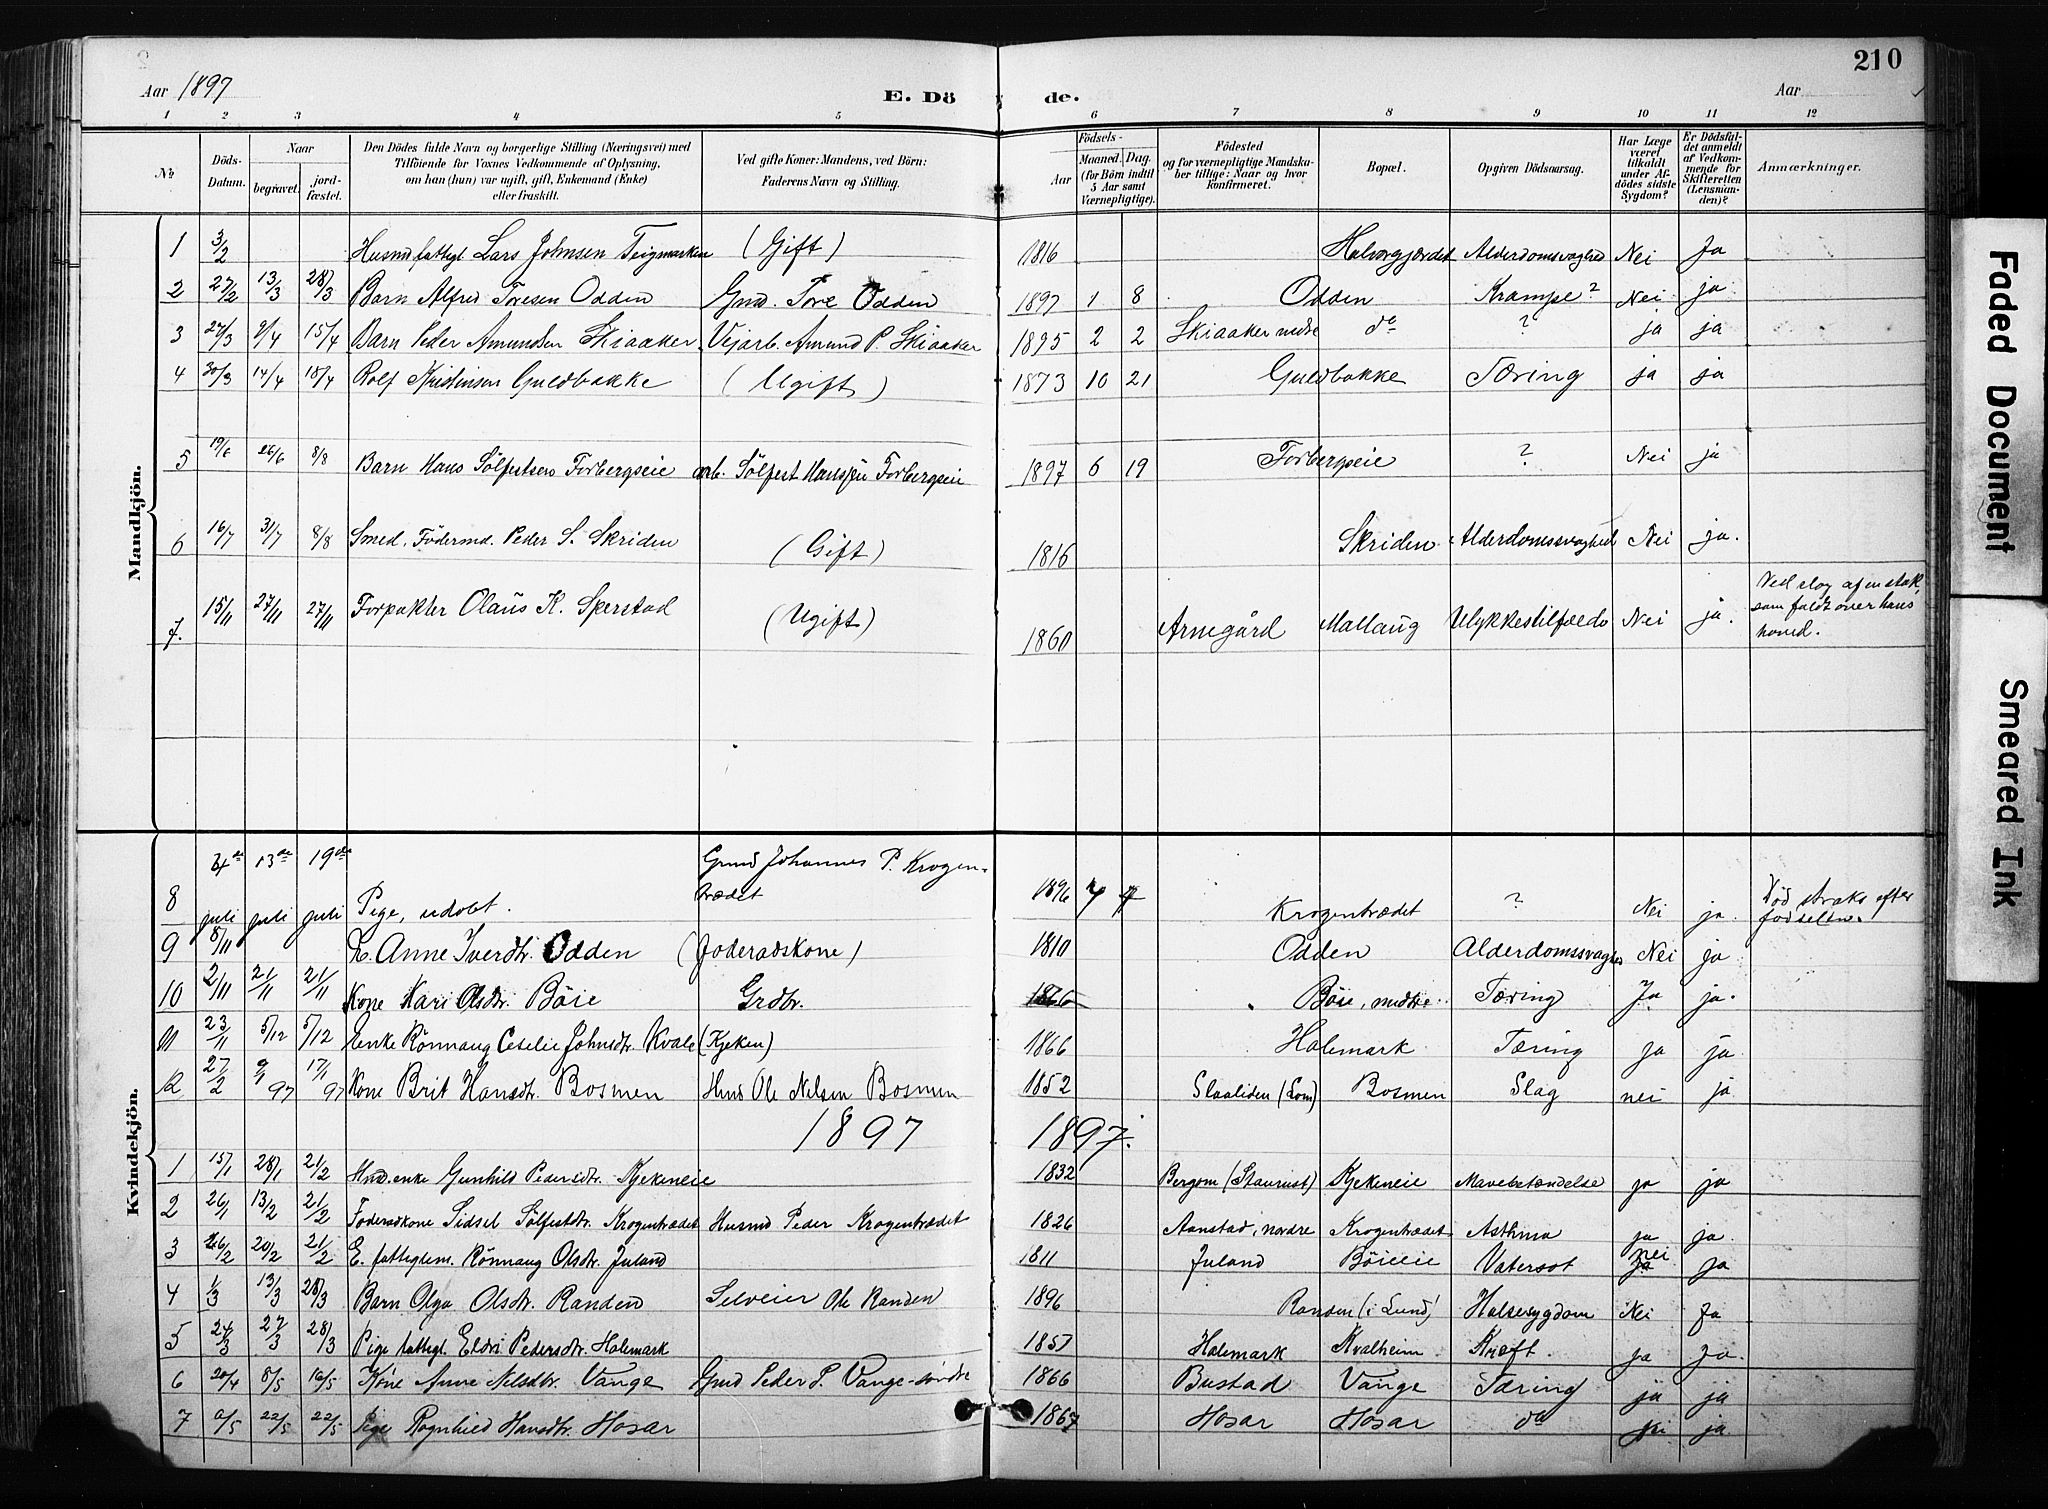 210
Aar 1897
E. Dö de.
Aar
1 2 3 4 5 6 7 8 9 10 11 12
No
Döds-Datum.
Naar
begravet.
jord-fæstet.
Den Dödes fulde Navn og borgerlige Stilling (Næringsvei) med
Tilföiende for Voxnes Vedkommende af Oplysning,
om han (hun) var ugift, gift, Enkemand (Enke)
eller fraskilt.
Ved gifte Koner: Mandens, ved Börn:
Faderens Navn og Stilling.
Födsels-
Aar
Maaned. Dag.
(for Börn indtil
5 Aar samt
Værnepligtige).
Födested
og for værnepligtige Mandska-
ber tillige: Naar og hvor
konfirmeret.
Bopæl.
Opgiven Dödsaarsag.
Har Læge
været
tilkaldt
under Af-
dödes sidste
Sygdom?
Er Dödsfal-
det anmeldt
af Vedkom-
mende for
Skifteretten
(Lensman-
den)?
Anmærkninger.
Mandkjön.
1 3/2 Husmd fattigl Lars Johnsen Teigmarken (Gift) 1816 Halvorgjærdet Alderdomsvaghed Nei Ja
2 27/2 13/3 28/3 Barn Alfred Toresen Odden Gmd. Tore Odden 1897 1 8 Odden Krampe? Nei ja
3 27/3 9/4 15/4 Barn Peder Amundsen Skiaaker Vejarb. Amund P. Skiaaker 1895 2 2 Skiaaker nedre do ? ja ja
4 30/3 14/4 18/4 Rolf Kristinsen Guldbakke (Ugift) 1873 10 21 Guldbakke Tæring ja ja
5 19/6 26/6 8/8 Barn Hans Sölfestsen Forbergseie arb. Sölfest Hansen Forbergseie 1897 6 19 Forbergseie ? Nei ja
6 16/7 31/7 8/8 Smed, Födermd. Peder S. Skriden (Gift) 1816 Skriden Alderdomssvaghed Nei ja.
7. 15/11 27/11 27/11 Forpakter Olaus K. Sperstad (Ugift) 1860 Arnegård Mallaug Ulykkestilfælde Nei ja. Ved slag af en stok, som faldt over hans hoved.
Kvindekjön.
8 4de juli 13de juli 19de juli Pige, udöbt. Gmd Johannes P. Krogen-
trædet 1896 7 4 Krogentrædet ? Nei ja. Död straks efter
fødselen.
9 8/11 E. Anne Iverdtr. Odden (foderadskone) 1810 Odden Alderdomssvaghed Nei ja
10 2/11 21/11 21/11 Kone Kari Olsdtr. Böie Grdbr. 1866 Böie, nedre Tæring Ja ja.
11 23/11 5/12 5/12 Enke Rönnaug Ceselie Johnsdtr. Kvale (Kjeken) 1866 Holemark Tæring ja ja
12 27/2 9/1 97 17/1 97 Kone Brit Hansdtr. Bosmen Hmd Ole Nelsen Bosmen 1852 Slaaliden (Lom) Bosmen Slag nei ja
1897 1897.
1 15/1 28/1 21/2 Hmd.enke Gunhild Pedersdtr. Kjekeneie 1832 Bergom (Staurust) Kjekeneie Mavebetændelse ja ja
2 26/1 13/2 21/2 Föderadkone Sidsel Sölfestdtr. Krogentrædet Husmd Peder Krogentrædet 1826 Aanstad, nordre Krogentrædet Asthma ja ja.
3 16/2 20/2 21/2 E. fattiglem. Rönnaug Olsdtr. Juland 1811 Juland Böieeie Vatersot nei ja
4 1/3 13/3 28/3 Barn Olga Olsdtr. Randen Selveier Ole Randen 1896 Randen (i Lund) Halssygdom Nei Ja
5 24/3 27/3 28/3 Pige fattigl. Eldri Pedersdtr. Holemark 1857 Holemark Kvalheim Kræft. ja Ja.
6 20/4 8/5 16/5 Kone Anne Nelsdtr. Vange Gmd Peder P. Vange söndre 1866 Bustad Vange Tæring ja ja
7 9/5 22/5 22/5 Pige Ragnhild Hansdtr. Hosar 1867 Hosar Hosar do Nei ja
Faded Document
Smeared Ink